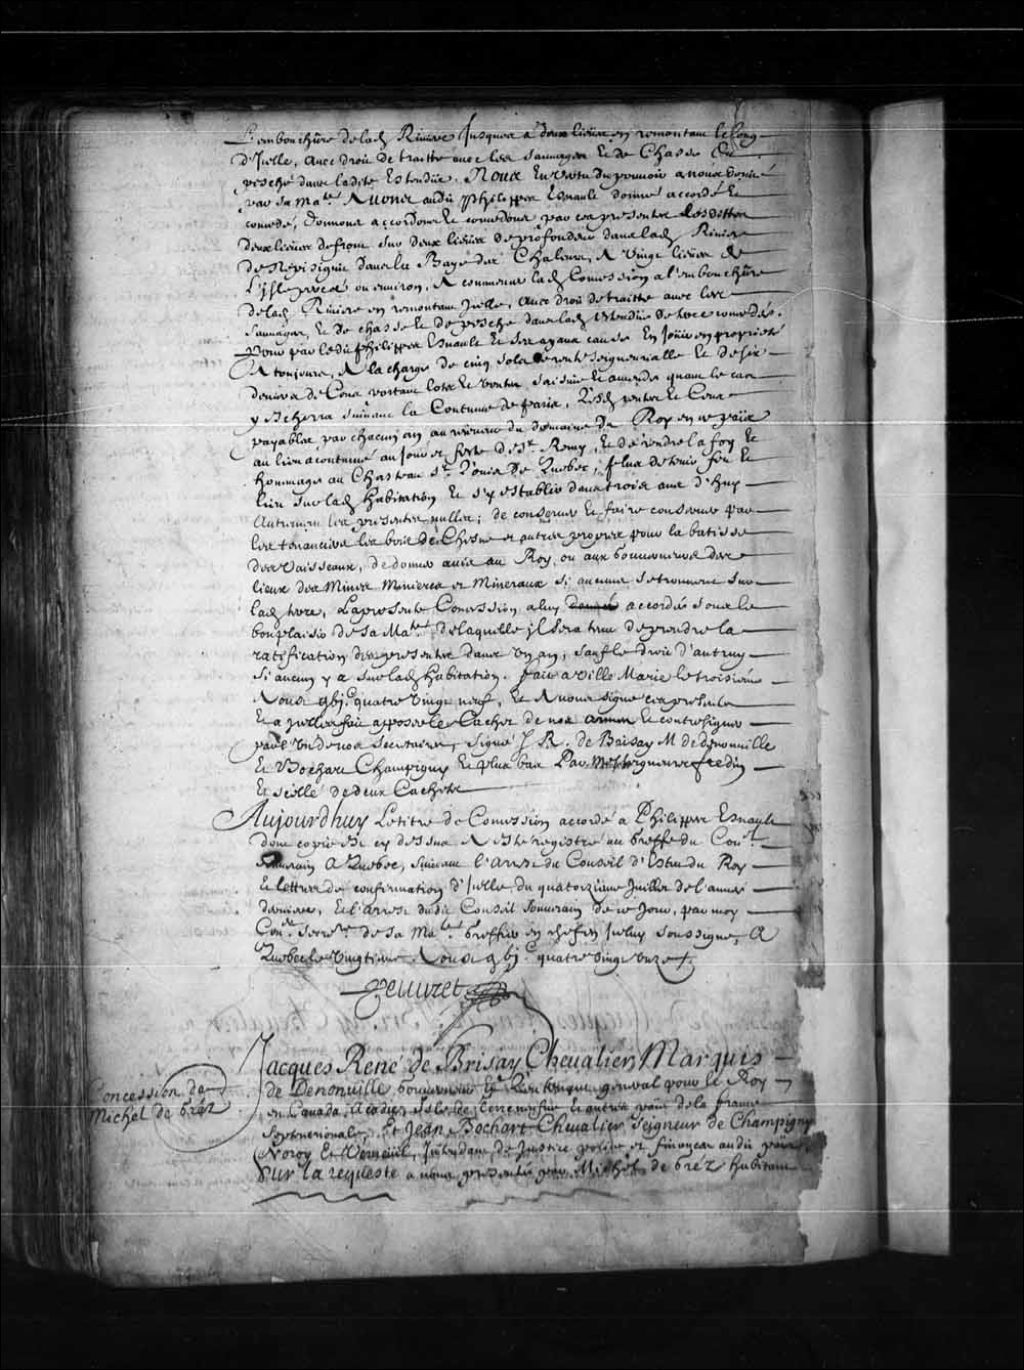 L'embouchûre de lad. Riviere Jusques a deux lieües en remontant le long
d'Icelle, avec droit de traitte avec les sauvages Et de Chasse Et
pesche dans ladite Estendüe. Nous En vertu du pouvoir a nous donné
par sa Ma.té Avons audit Philippes Esnault donné accordé Et
concedé, donnons accordons Et concedons par ces presentes lesdittes
deux lieües de front sur deux lieües de profondeur dans lad. Riviere
de Nepisiguit dans la Baye des Chaleurs, A vingt lieües de
l'isle percée ou environ, A commencer lad. Concession a l'embouchûre
de lad. Riviere en remontant Icelle, avec droit de traitte avec les
Sauvages Et de chasse Et de pesche dans lad. Estendüe de terre concedée.
pour par ledit Philippes Esnault Et ses ayans cause En Joüir en proprieté
A toujours, A la charge de cinq sols de rente seigneurialle Et de six
deniers de Cens portant lots Et ventes, saisine Et amendes quand le cas
y Echerra suivant la Coutume de Paris, Lesd. rentes Et Cens
payables par chacun an au receveur du domaine du Roy en ce païs
au lieu acoutumé au Jour et feste de St. Remy, Et de rendre la foy Et
hommages au Chasteau St. Loüis de Quebec, plus de tenir feu Et
lieu sur lad. habitation Et s'y establir dans trois ans d'huy
Autrement les presentes nulles; de conserver Et faire conserver par
les tenanciers les bois de Chesne et autres propres pour la batisse
des Vaisseaux, de donner avis au Roy, ou aux Gouverneurs des
lieux des Mines Minieres et Mineraux si aucuns se trouvent sur
lad. terre, La presente Concession a luy accordée sous le
bon plaisir de Sa Ma.té de laquelle il sera tenu de prendre la
ratification des presentes dans un an; sauf le droit d'autruy
si aucun y a sur lad. habitation. fait a Ville Marie le troisieme
Aoust gbj.c quatre vingt neuf, Et Avons signé ces presentes
Et a Icelles fait apposer le Cachet de nos armes Et contresigner
par l'un de nos Secretaires, Signé J. R. de Brisay M de denonville
Et Bochart Champigny Et plus bas Par Messeigneurs fredin
Et scellé de deux Cachets
Aujourdhuy Le titre de Concession accordé a Philippes Esnault
dont copie Est cy dessus A Esté registré au Greffe du Con.el
Souverain A Quebec, suivant l'arrest du Conseil d'Estat du Roy
Et lettres de confirmation d'Icelle du quatorzieme Juillet de l'année
derniere, Et l'arrest dudit Conseil Souverain de ce Jour, par moy
Con.er Secre.re de Sa Ma.té Greffier en chef en Iceluy soussigné, A
Quebec le vingtieme Aoust gbj.c quatre vingt onze
Peuvret
Concession de
Michel de Gréz
Jacques René de Brisay Chevalier, Marquis
de Denonville, Gouverneur Et Lieutenant general pour le Roy
en Canada, Acadie, Isle de terre neufve Et autres païs de la france
Septentrionale, Et Jean Bochart Chevalier Seigneur de Champigny
Noroy Et Verneuil, Intendant de Justice police et finances audit païs
Sur la requeste a nous presentée par Michel de Gréz habitant